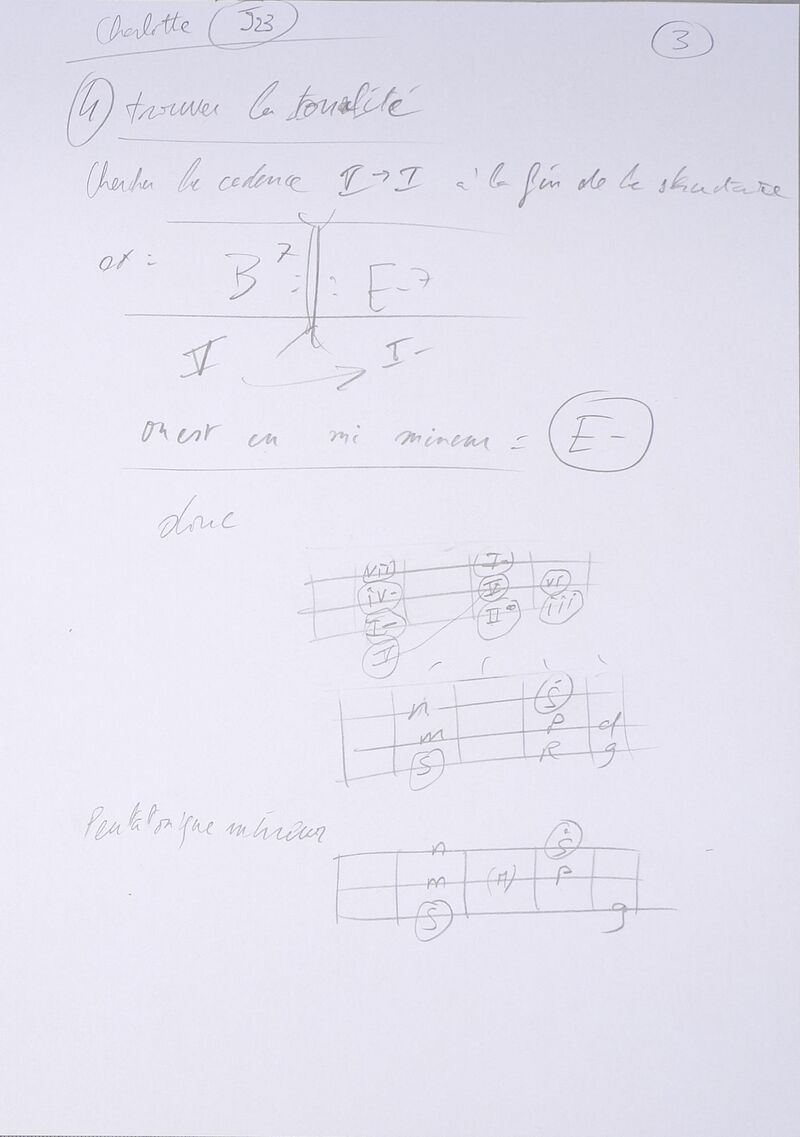 Charlotte J23
3
4 trouver la tonalité
Chercher la cadence V → I à la fin de la structure
ex = B7 : : E-7
V I-
on est en mi mineur = E-
donc
VII I-
iv- V vi
I- II° iii
V
n S
m P d
S R g
Pentatonique mineur
n S
m (M) P
S g